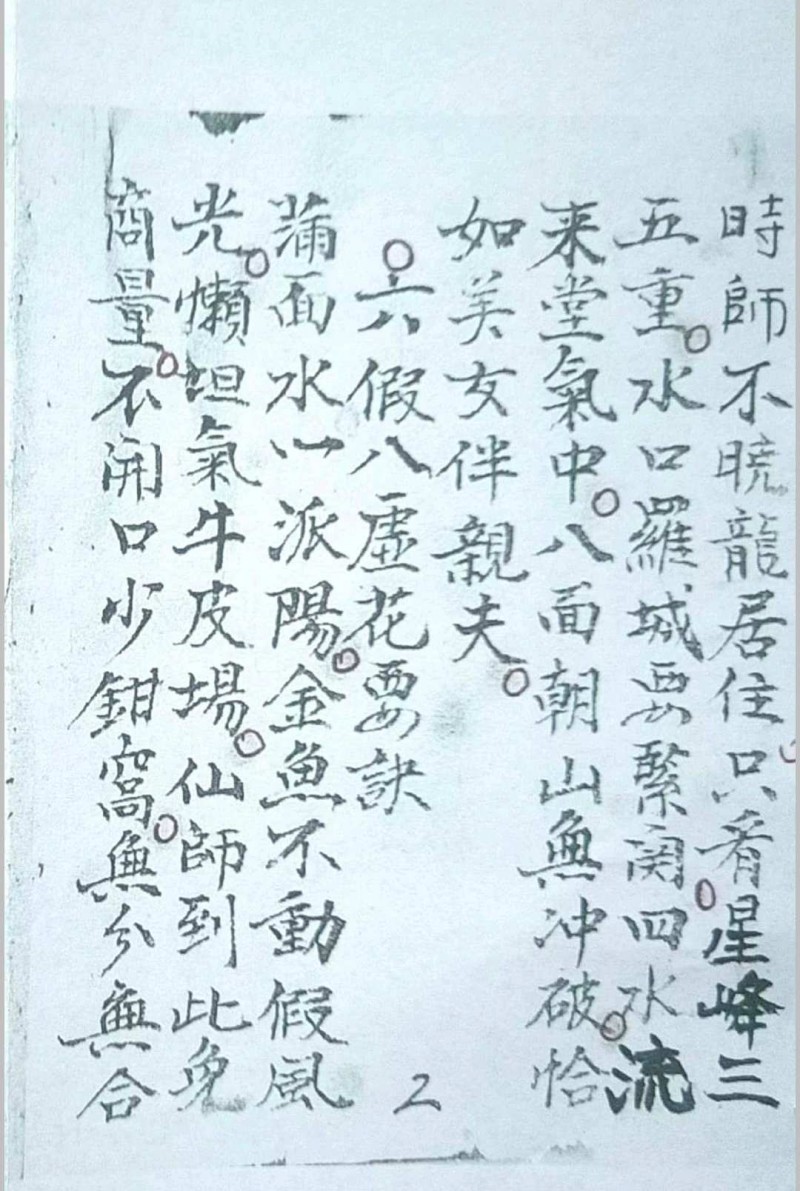 時師不曉龍居住只看星峰三
五重水口羅城要緊関四水流
来堂氣中八面朝山無冲破恰
如美女伴親夫
六假八虛花要訣
滿面水一派陽金魚不動假風
光懶坦氣牛皮場仙師到此免
商量不開口少鉗窩無分無合
2